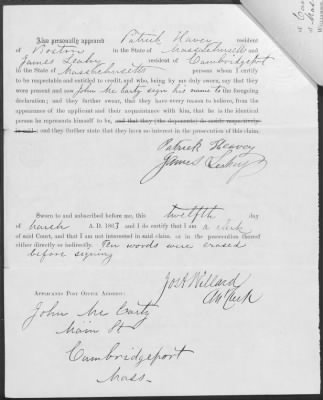 Also personally appeared Patrick Havey resident
of Boston in the State of Massachusetts and
James Leahy resident of Cambridgeport
in the State of Massachusetts persons whom I certify
to be respectable and entitled to credit, and who, being by me duly sworn, say that they
were present and saw John Mc Carty sign his name to the foregoing
declaration; and they further swear, that they have every reason to believe, from the
appearance of the applicant and their acquaintance with him, that he is the identical
person he represents himself to be, and that they (the deponents) do reside respectively
as said; and they further state that they have no interest in the prosecution of this claim.
Patrick Heavey
James Leahy
Sworn to and subscribed before me, this twelfth day
of March A. D. 1863 and I do certify that I am a clerk
of said Court, and that I am not interested in said claim, or in the prosecution thereof
either directly or indirectly. Ten words were erased
before signing
Jos A Willard
Clerk
APPLICANTS POST OFFICE ADDRESS:
John Mc Carty
Main St
Cambridgeport
Mass.